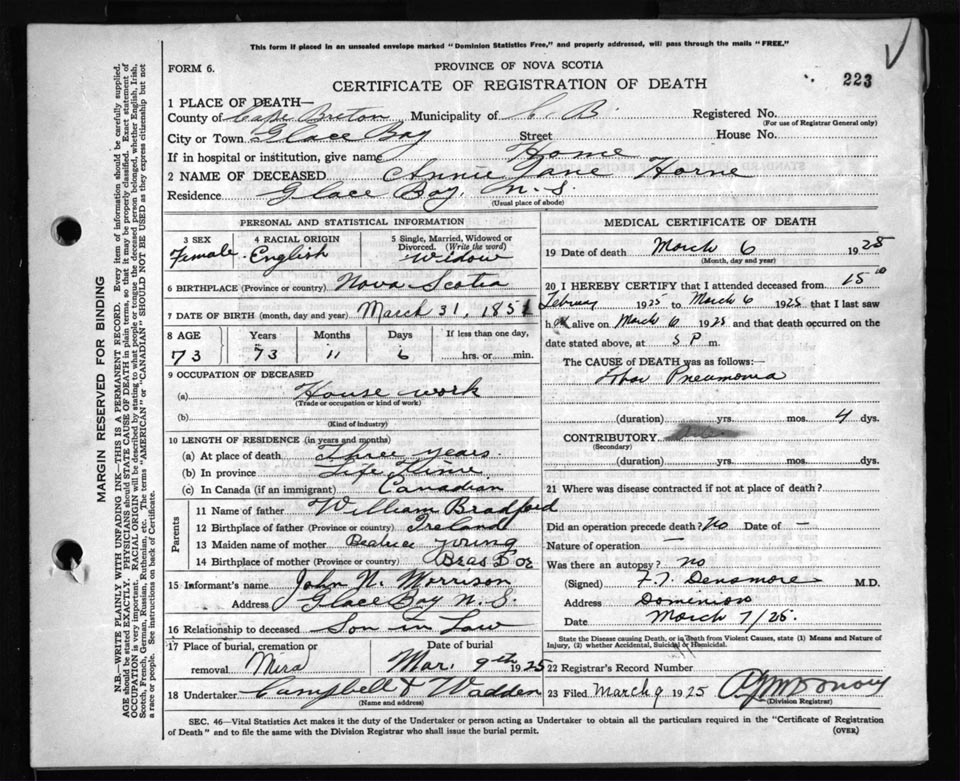 This form if placed in an unsealed envelope marked "Dominion Statistics Free," and properly addressed, will pass through the mails "FREE."
FORM 6.
PROVINCE OF NOVA SCOTIA
CERTIFICATE OF REGISTRATION OF DEATH
223
1 PLACE OF DEATH—
County of Cape Breton Municipality of C. B. Registered No.
(For use of Registrar General only)
City or Town Glace Bay Street House No.
If in hospital or institution, give name Home
2 NAME OF DECEASED Annie Jane Horne
Residence Glace Bay, N. S.
(Usual place of abode)
PERSONAL AND STATISTICAL INFORMATION
3 SEX Female
4 RACIAL ORIGIN English
5 Single, Married, Widowed or Divorced. (Write the word) Widow
6 BIRTHPLACE (Province or country) Nova Scotia
7 DATE OF BIRTH (month, day and year) March 31, 1851
8 AGE Years Months Days If less than one day,
73 73 11 6 hrs. or min.
9 OCCUPATION OF DECEASED
(a) House work
(Trade or occupation or kind of work)
(b)
(Kind of industry)
10 LENGTH OF RESIDENCE (in years and months)
(a) At place of death Three years.
(b) In province Life Time
(c) In Canada (if an immigrant) Canadian
Parents
11 Name of father William Bradford
12 Birthplace of father (Province or country) Ireland
13 Maiden name of mother Beatrice Young
14 Birthplace of mother (Province or country) Bras D'or
15 Informant's name John N. Morrison
Address Glace Bay N. S.
16 Relationship to deceased Son in Law
17 Place of burial, cremation or removal Mira
Date of burial Mar. 9th 1925
18 Undertaker Campbell & Wadden
(Name and address)
MEDICAL CERTIFICATE OF DEATH
19 Date of death March 6 1925
(Month, day and year)
20 I HEREBY CERTIFY that I attended deceased from 15th
February 1925 to March 6 1925 that I last saw
her alive on March 6 1925 and that death occurred on the
date stated above, at 5 P m.
The CAUSE of DEATH was as follows:
Lobar Pneumonia
(duration) yrs. mos. 4 dys.
CONTRIBUTORY
(Secondary)
(duration) yrs. mos. dys.
21 Where was disease contracted if not at place of death?
Did an operation precede death? No Date of —
Nature of operation —
Was there an autopsy? no
(Signed) F. T. Densmore M.D.
Address Dominion
Date March 7/25.
State the Disease causing Death, or in Death from Violent Causes, state (1) Means and Nature of
Injury, (2) whether Accidental, Suicidal or Homicidal.
22 Registrar's Record Number
23 Filed March 9 1925
(Division Registrar)
SEC. 46—Vital Statistics Act makes it the duty of the Undertaker or person acting as Undertaker to obtain all the particulars required in the "Certificate of Registration
of Death" and to file the same with the Division Registrar who shall issue the burial permit.
(OVER)
MARGIN RESERVED FOR BINDING
N.B.—WRITE PLAINLY, WITH UNFADING INK—THIS IS A PERMANENT RECORD. Every item of information should be carefully supplied.
AGE should be stated EXACTLY. PHYSICIANS should STATE CAUSE OF DEATH in plain terms, so that it may be properly classified. Exact statement of
OCCUPATION is very important. RACIAL ORIGIN will be described by stating to what people or tongue the deceased person belonged, whether English, Irish,
Scotch, French, German, Russian, Ruthenian, etc. The terms "AMERICAN" or "CANADIAN" SHOULD NOT BE USED as they express citizenship but not
a race or people. See instructions on back of Certificate.